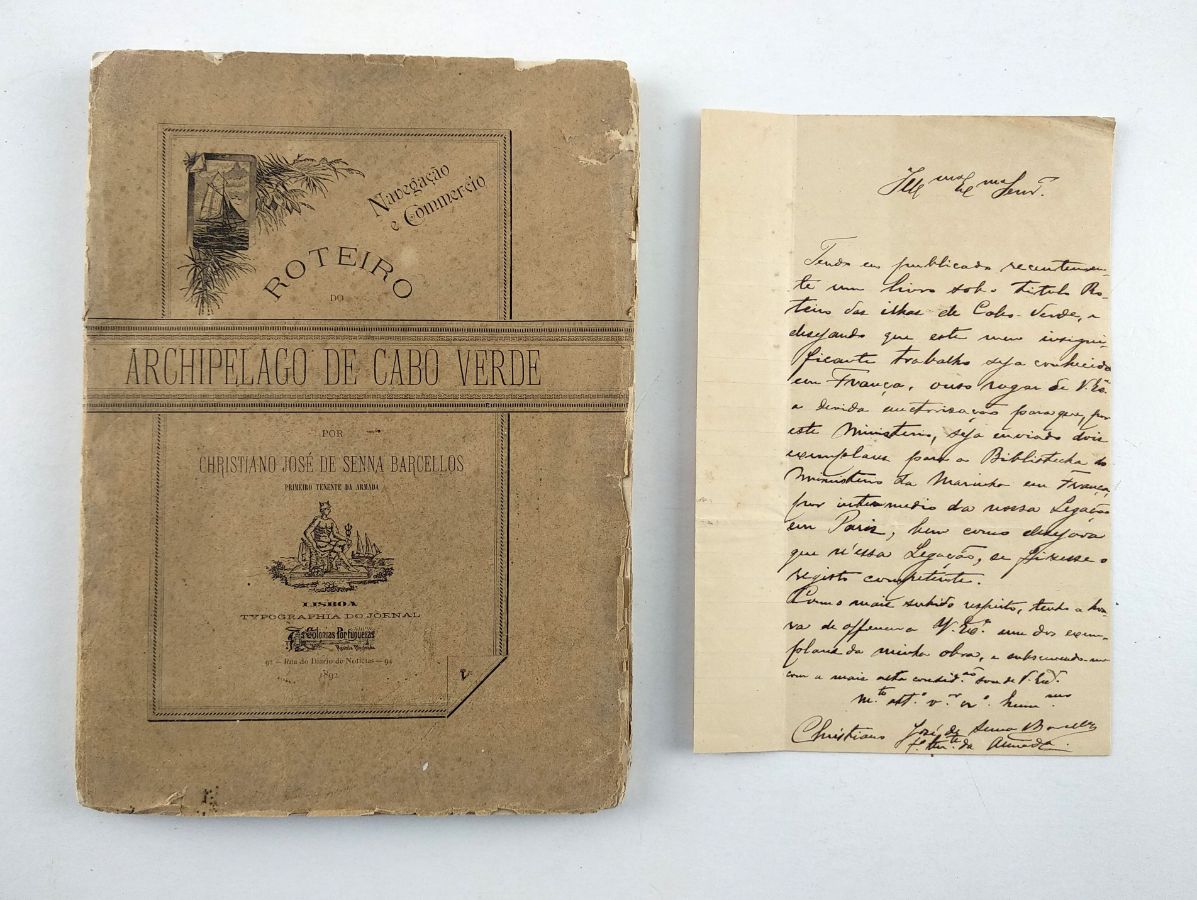 Navegação
e Commercio
ROTEIRO
DO
ARCHIPELAGO DE CABO VERDE
POR
CHRISTIANO JOSÉ DE SENNA BARCELLOS
PRIMEIRO TENENTE DA ARMADA
LISBOA
TYPOGRAPHIA DO JORNAL
As Colonias Portuguezas
Rua do Diario de Noticias — 94
1892
Ill.mo Ex.mo Senr.
Tendo eu publicado recentemen-
te um livro sob o titulo Ro-
teiro das ilhas de Cabo-Verde, e
desejando que este meu insigni-
ficante trabalho seja conhecido
em França, ouso rogar de V. Ex.ª
a devida auctorização para que, por
este Ministerio, seja enviado dois
exemplares para a Bibliotheca do
Ministerio da Marinha em França,
por intermedio da nossa Legação
em Paris, bem como desejava
que n'essa Legação, se fizesse o
registo competente.
Com o mais subido respeito, tenho a hon-
ra de offerecer a V. Ex.ª um dos exem-
plares da minha obra, e subscrevendo-me
com a mais alta consid.ão sou de V. Ex.ª
m.to att.o v.or cr.o
Christiano José de Senna Barcellos
1º Ten.te da Armada.